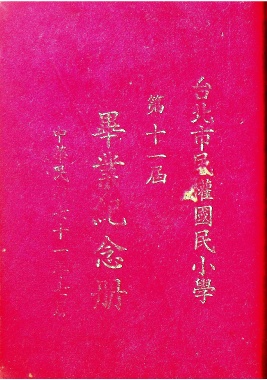 台北市民權國民小學
第十一屆
畢業紀念册
中華民 七十一年